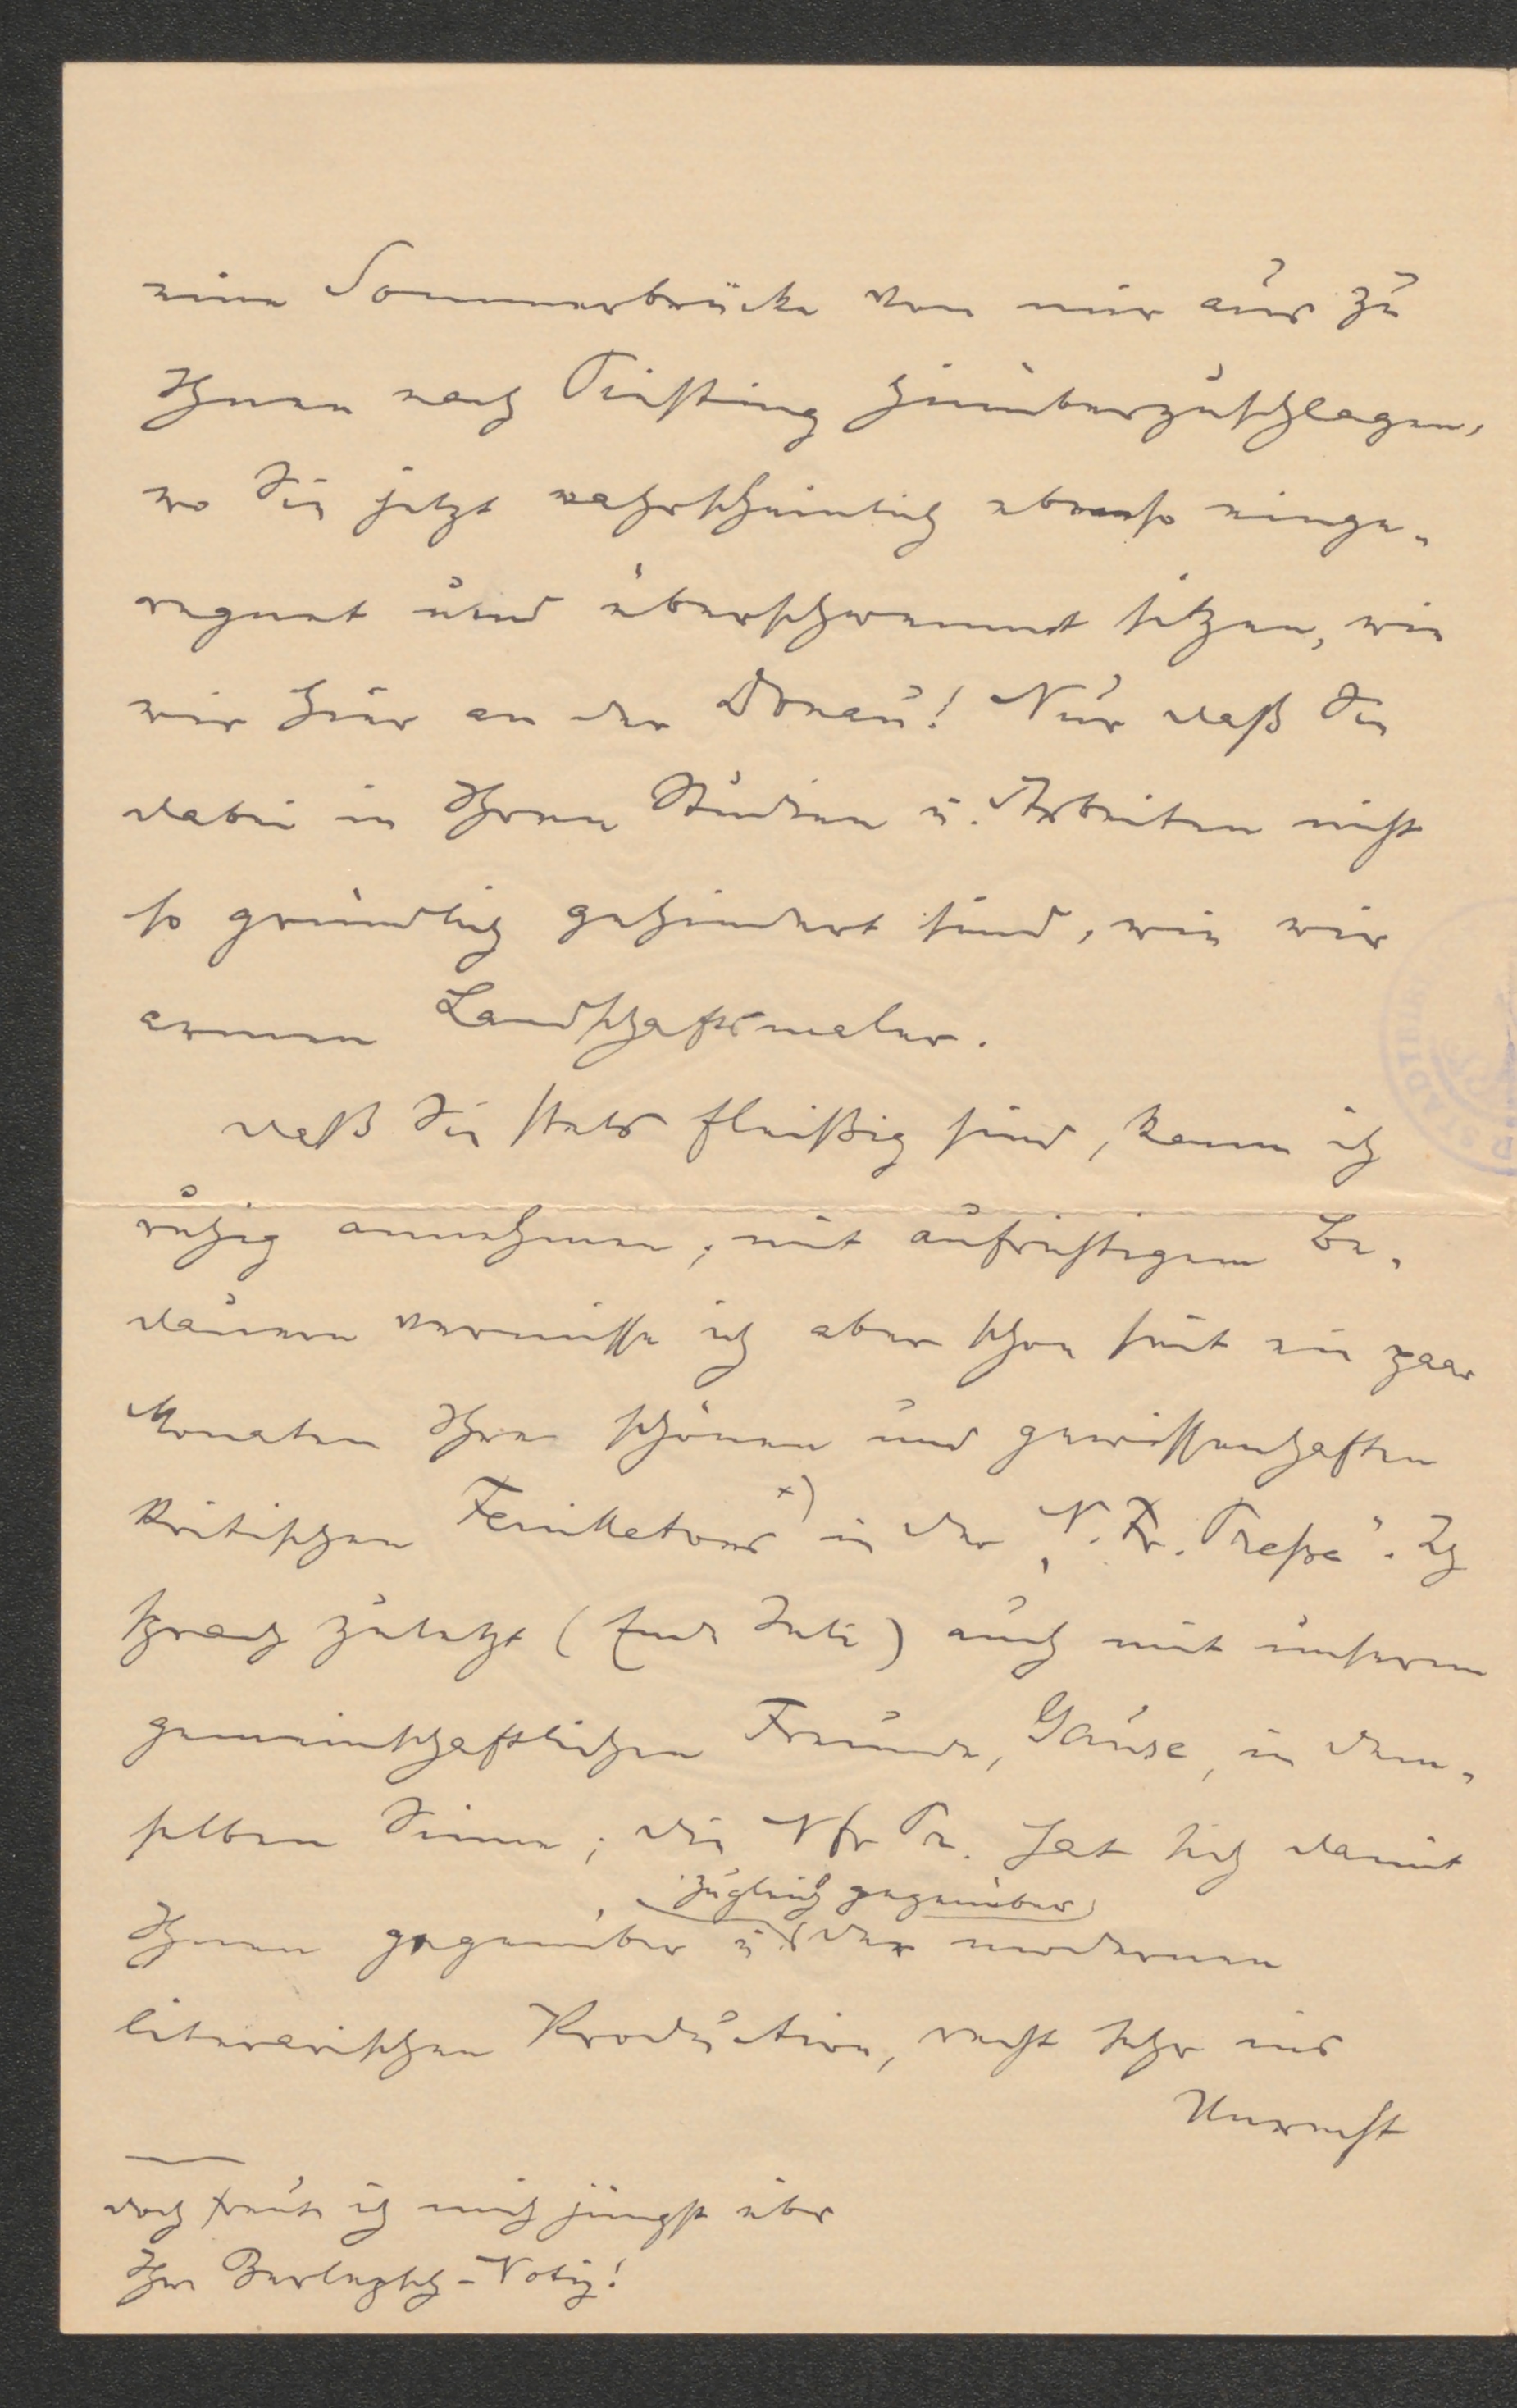 eine Sommerbrücke von mir aus zu
Ihnen nach Piesting hinüberzuschlagen,
wo Sie jetzt wahrscheinlich ebenso einge-
regnet und überschwemmt sitzen, wie
wir hier an der Donau! Nur daß Sie
dabei in Ihren Studien u. Arbeiten nicht
so gründlich gehindert sind, wie wir
armen Landschaftsmaler.
Daß Sie stets fleißig sind, kann ich
ruhig annehmen; mit aufrichtigem Be-
dauern vermisse ich aber schon seit ein paar
Monaten Ihre schönen und gewissenhaften
kritischen Feuilletons x) in der „N. Fr. Presse“. Ich
sprach zuletzt (Ende Juli) auch mit unserem
gemeinschaftlichen Freunde, Gause, in dem-
selben Sinne; die NfrPr. hat sich damit
zugleich gegenüber
Ihnen gegenüber u. der modernen
literarischen Production, recht sehr ins
Unrecht
doch freute ich mich jüngst über
Ihre Berlepsch-Notiz!